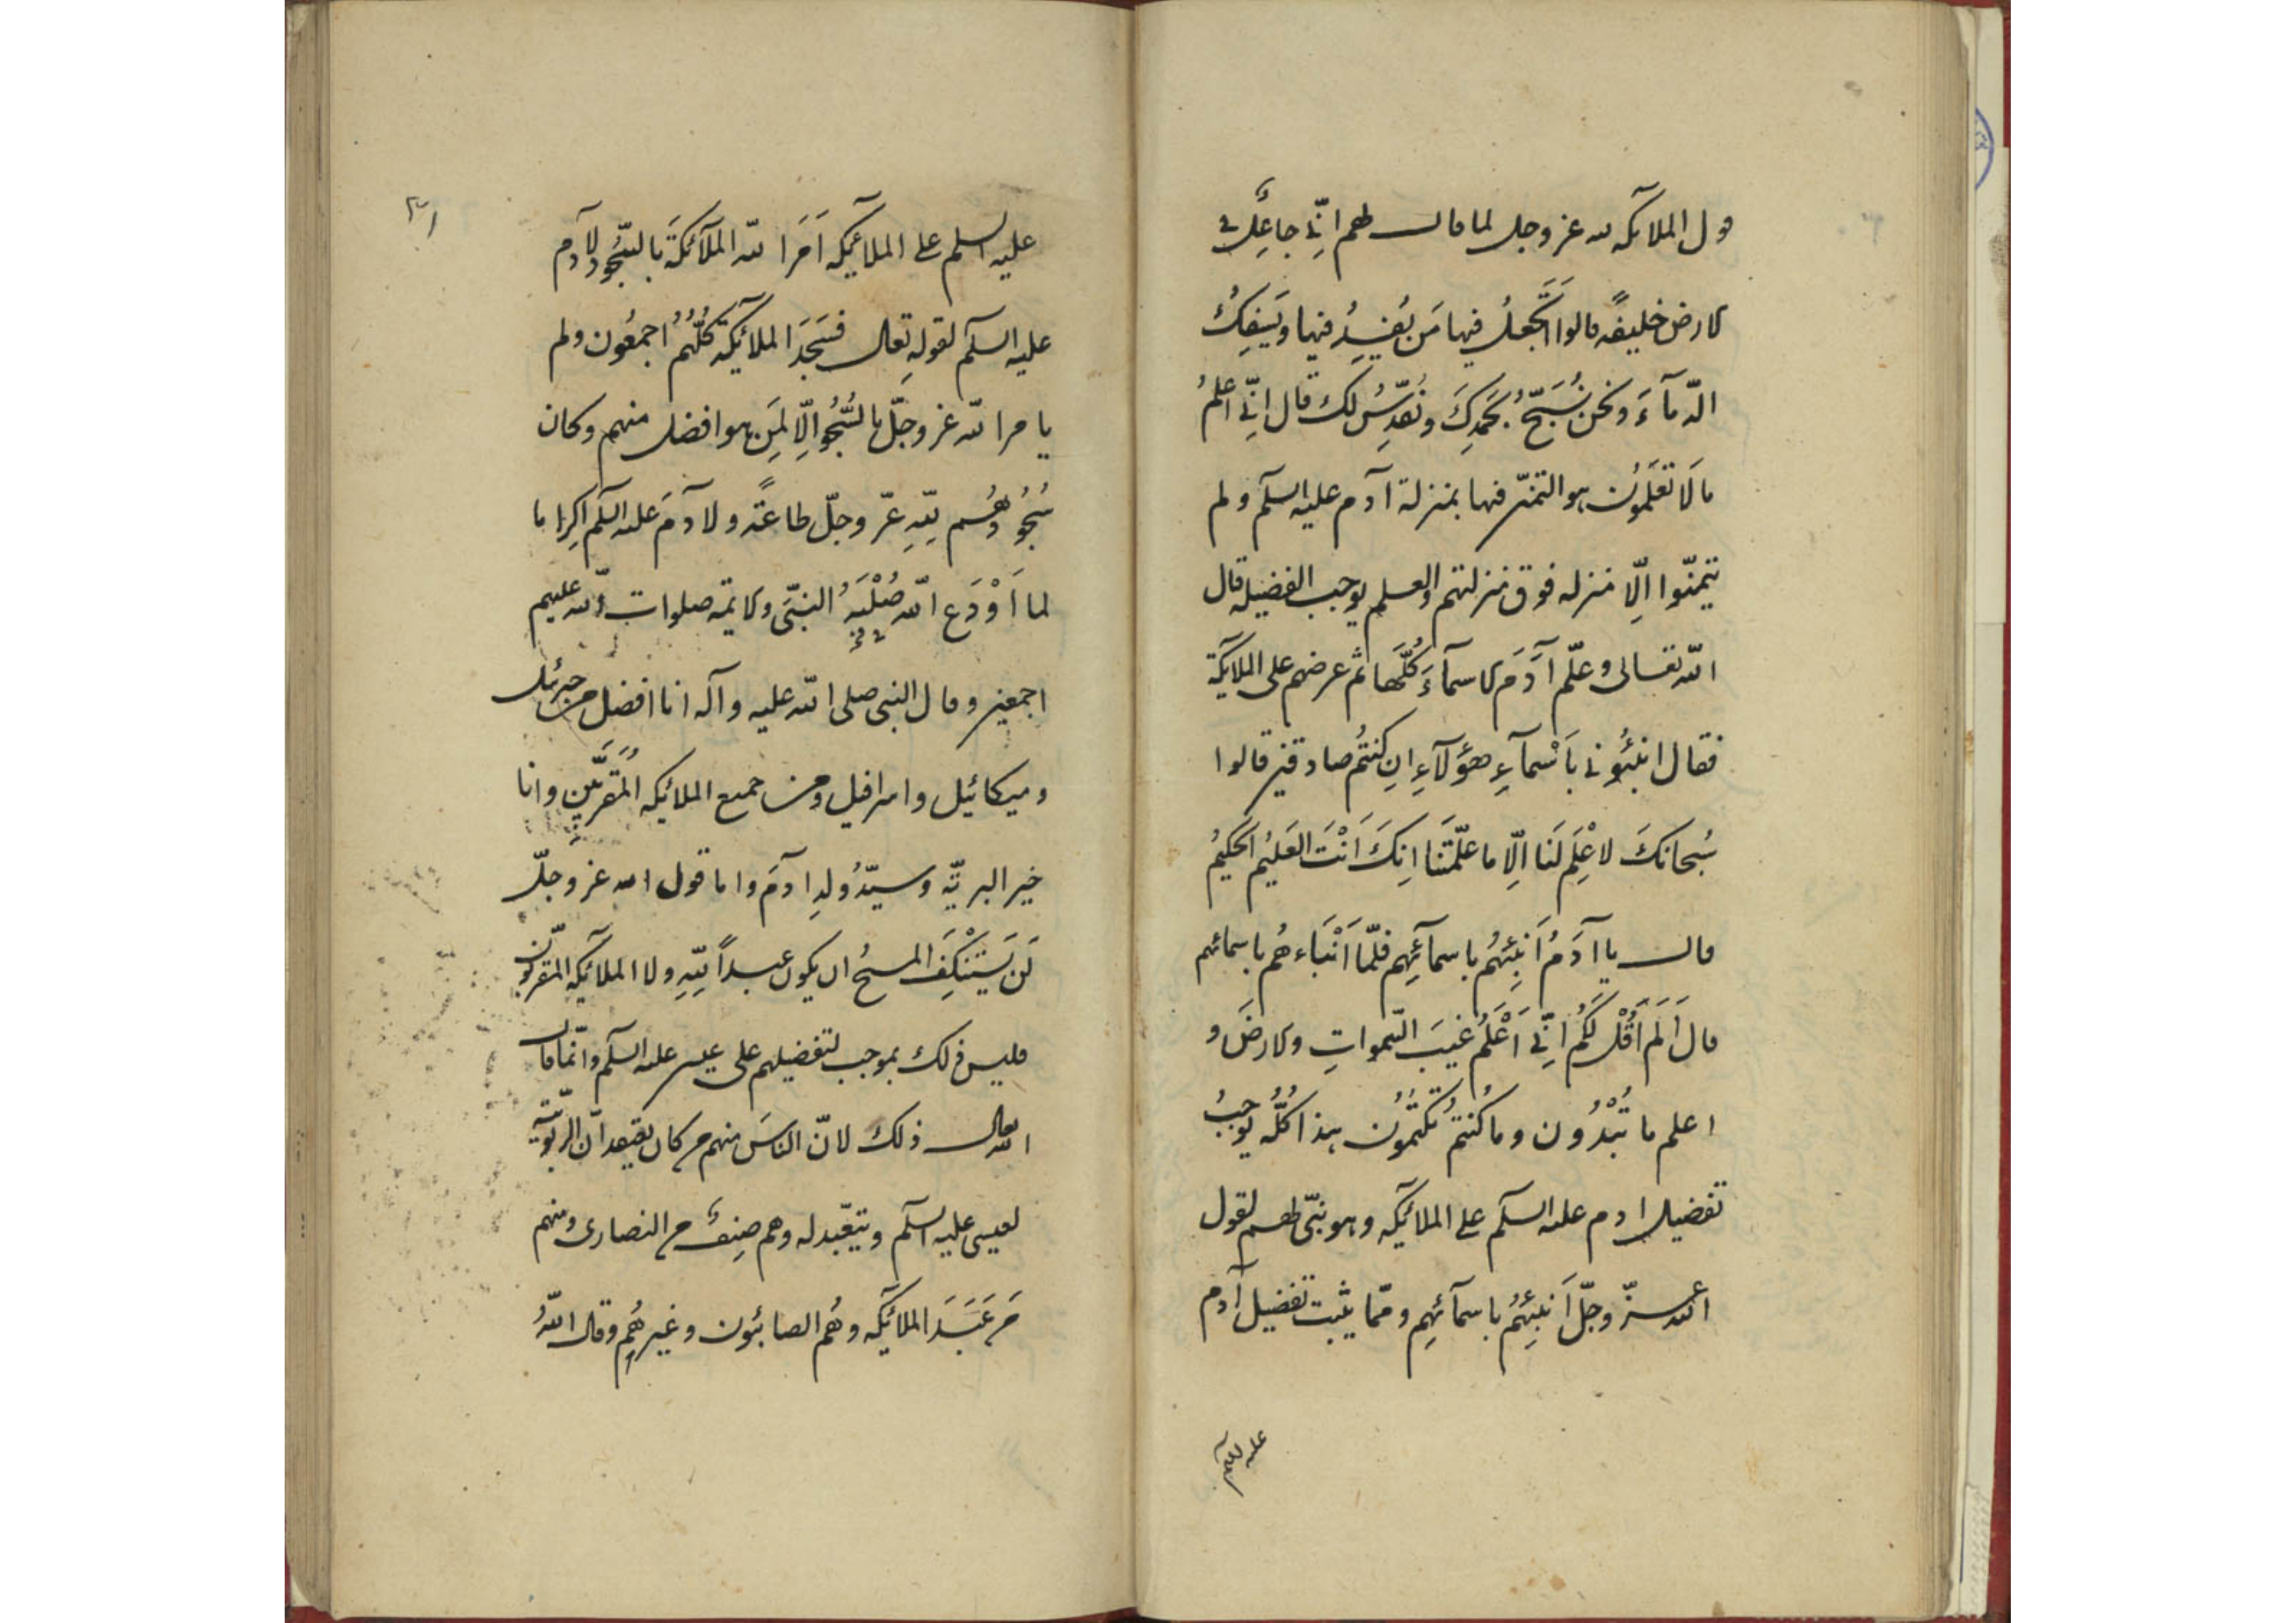 قول الملائكه لله عز وجل لما قال لهم انّي جاعِلٌ في
الارض خليفةً قالوا اَتَجعلُ فيها مَن يُفسِدُ فيها ويَسفِكُ
الدّمآءَ ونحن نُسَبّحُ بحَمدِكَ ونُقدّسُ لك قال اِنّي اعلمُ
مالَا تَعلَمُون هو التمنّي فيها بمنزلة آدم عليه السلم ولم
يتمنّوا الّا منزله فوق منزلتهم والعلم يوجب الفضيله قال
الله تعالى وعلّم آدَمَ الاسمآءَ كُلَّها ثم عرضهم على الملائكة
فقال انبئُوني بِاَسْمآءِ هؤلآءِ ان كنتُم صادقين قالوا
سُبحانَكَ لا عِلْمَ لَنا اِلّا ما علّمتَنا اِنكَ اَنْتَ العَليمُ الحَكيمُ
قال يا آدَمُ اَنبِئهُم باسمآئِهِم فلمّا اَنْبَاءهُم باسمائهم
قالَ اَلَم اَقُلْ لَكُم اِنّي اَعْلَمُ غيبَ السّمواتِ والارضَ و
اعلم ما تُبْدُون وما كُنتُم تَكتُمُون هذا كُلّه يُوجِبُ
تفضيل ادم عليه السلم على الملائكه وهو نبيّ لهم لقول
الله عزّ وجلّ اَنبِئهُم باسمآئِهِم وممّا يثبت تفضيل آدم
عليه السلم
٣١
عليه السلم على الملائكه اَمَرَ الله الملآئكةَ بالسّجُود لآدم
عليه السلم لقولهِ تعالى فسَجَدَ الملائكة كُلُّهُم اجمعُون ولم
يامر الله عز وجلّ بالسُّجُود اِلّا لِمَن هو افضل منهم وكان
سُجُودُهُم لِلّهِ عزّ وجلّ طاعةً ولآدمَ عليه السلم اكراما
لما اَوْدَع الله صُلْبَهُ النبيَّ والائمه صلوات الله عليهم
اجمعين وقال النبي صلى الله عليه وآله انا افضل من جبرئيل
وميكائيل واسرافيل ومن جميع الملائكه المُقَرَّبينِ وانا
خير البريّه وسيّدُ ولدِ ادَمَ واما قول الله عز وجلّ
لَن يَسْتَنْكِفَ المسيحُ ان يكون عبداً لِلّهِ ولا الملآئكه المقرّبون
فليس ذلك بموجب لتفضيلهم على عيسى عليه السلم وانّما قال
الله تعالى ذلك لانّ الناسَ منهم من كان يعتقد انّ الربوبيّة
لعيسى عليه السلم ويتعّبد له وهم صِنفٌ من النصارى ومنهم
مَن عَبَدَ الملائكه وهُم الصابئون وغيرهُم وقال اللهُ